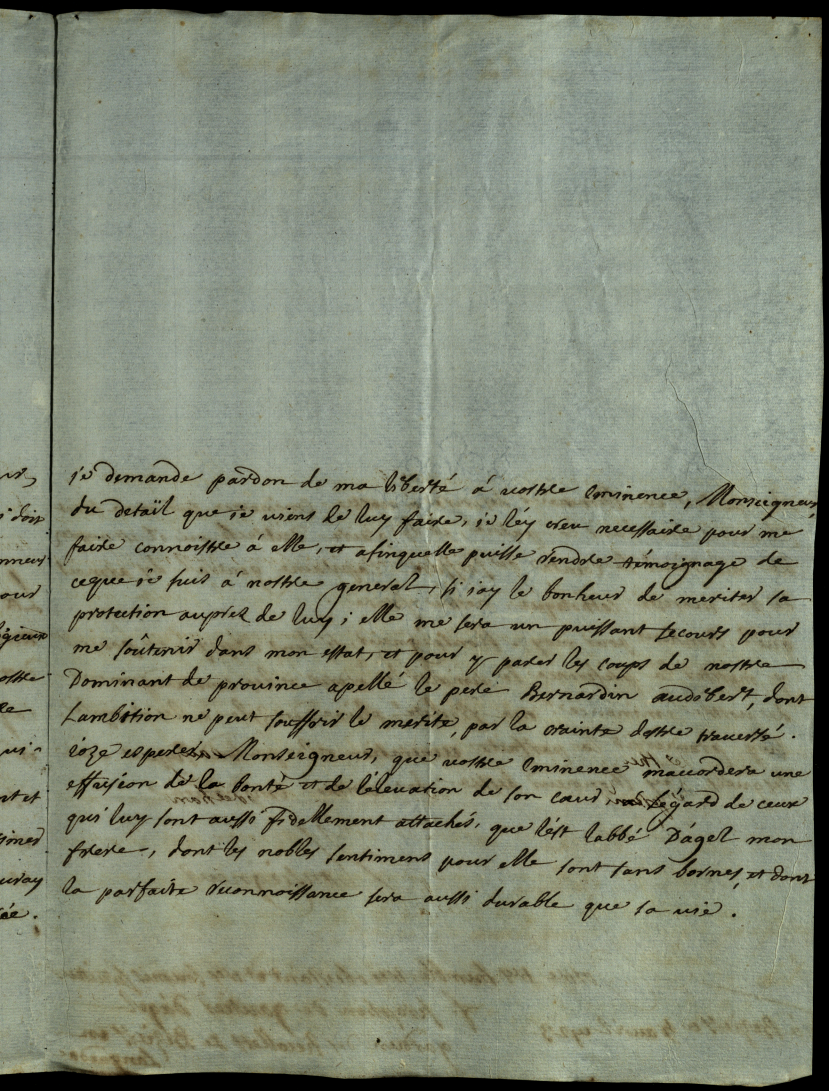 ie demande pardon de ma liberté á vostre eminence, Monseigneur,
du detaïl que ie viens de luy faire, ie l'ey creu necessaire pour me
faire connoistre á elle, et afinquelle puisse rendre témoignage de
ceque ie suis á nostre general, si iay le bonheur de meriter sa
protection auprez de luy; elle me sera un puissant secours pour
me soûtenir dans mon estat, et pour y parer les coups de nostre
Dominant de province apellé le pere Bernardin audibert, dont
Lambition ne peut souffrir le merite, par la crainte destre traversé.
ioze esperer, Monseigneur, que vostre eminence m'acordera une
effusion de la bonté et de l'élevation de son cœur, a l'égard de ceux
qui luy sont aussi fidellement attachés, que l'est labbé Dágel mon
frere, dont les nobles sentimens pour elle sont sans bornes, et dont
la parfaite reconnoissance sera aussi durable que sa vie.